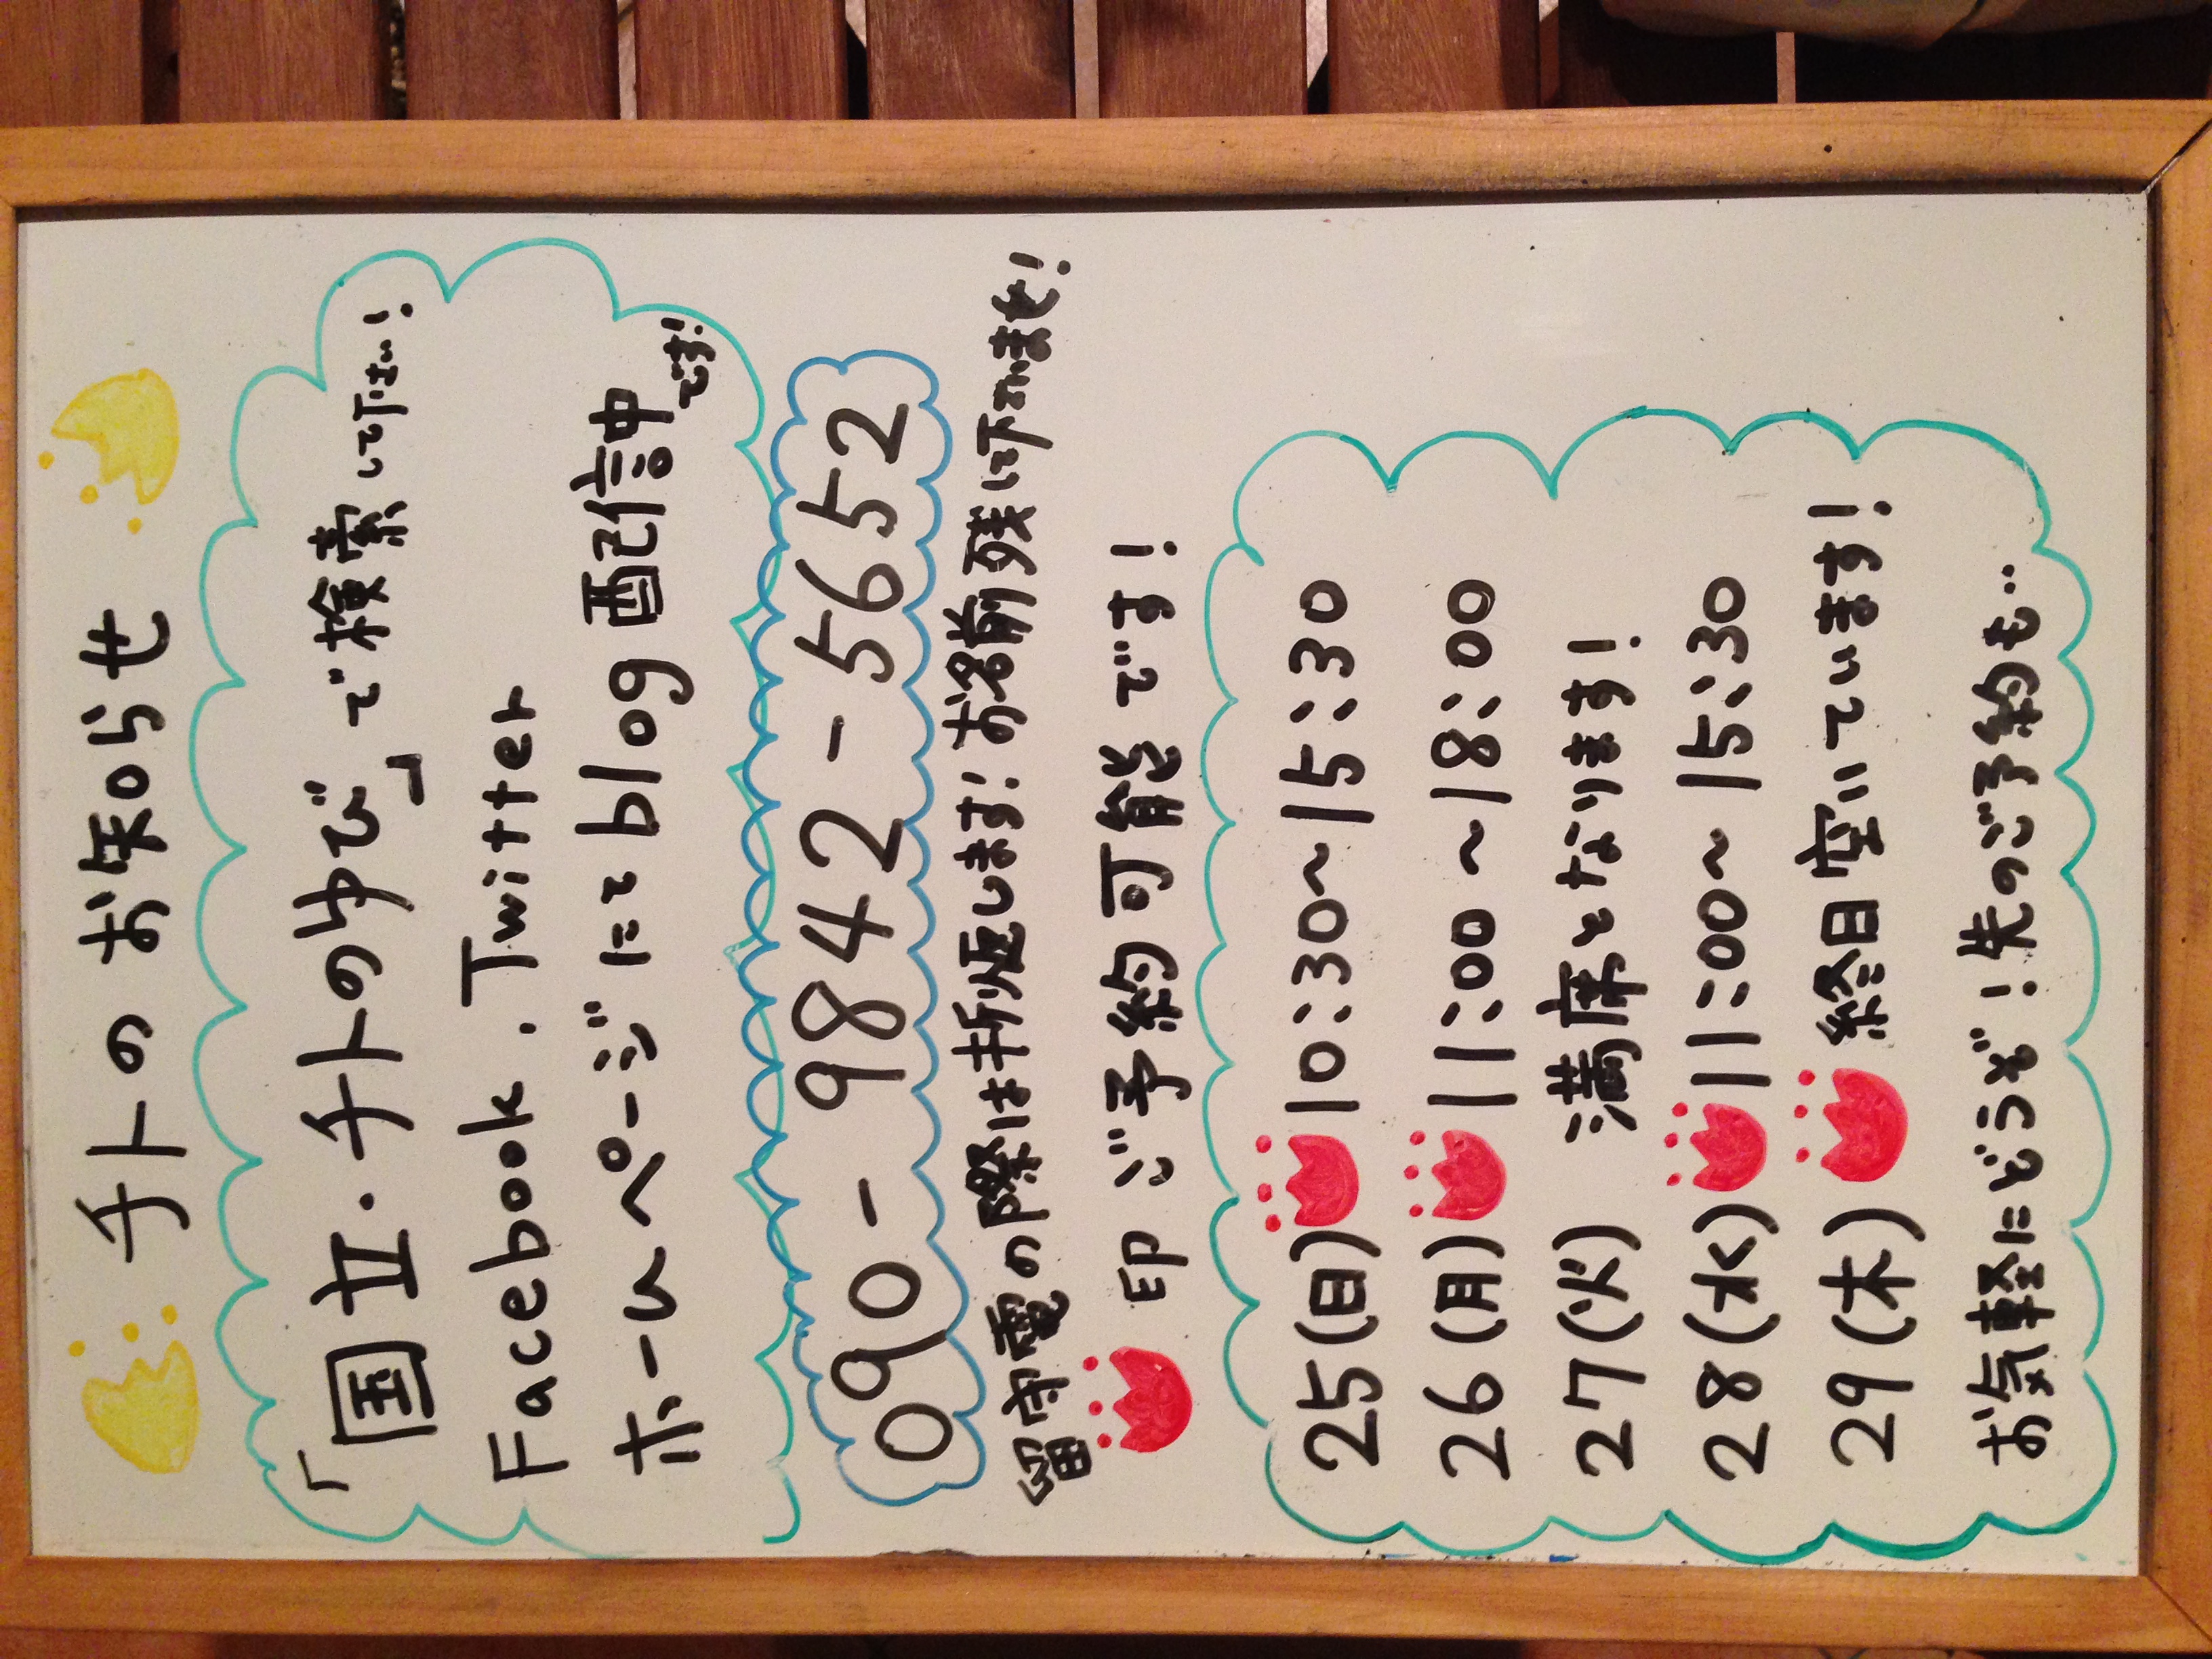 チトの お知らせ
「国立.チトのゆび」で検索して下さい!
Facebook.Twitter
ホームページにてblog配信中です!
090-9842-5652
留守電の際は折り返します!お名前残して下さいませ!
印 ご予約可能です!
25(日) 10:30~15:30
26(月) 11:00~18:00
27(火) 満席となります!
28(水) 11:00~15:30
29(木) 終日空いています!
お気軽にどうぞ!先のご予約も…